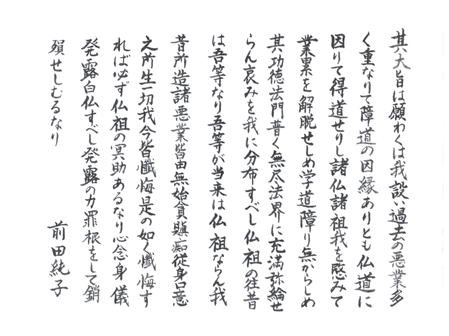 其大旨は願わくは我設い過去の悪業多
く重なりて障道の因縁ありとも仏道に
因りて得道せりし諸仏諸祖我を愍みて
業累を解脱せしめ学道障り無からしめ
其功徳法門普く無尽法界に充満弥綸せ
らん哀みを我に分布すべし仏祖の往昔
は吾等なり吾等が当来は仏祖ならん我
昔所造諸悪業皆由無始貪瞋痴従身口意
之所生一切我今皆懺悔是の如く懺悔す
れば必ず仏祖の冥助あるなり心念身儀
発露白仏すべし発露の力罪根をして銷
殞せしむるなり
前田純子